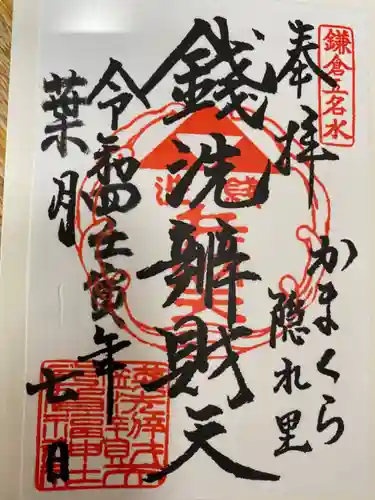 鎌倉五名水
奉拝
かまくら
隠れ里
銭洗辨財天
令和四壬寅年
葉月
七日